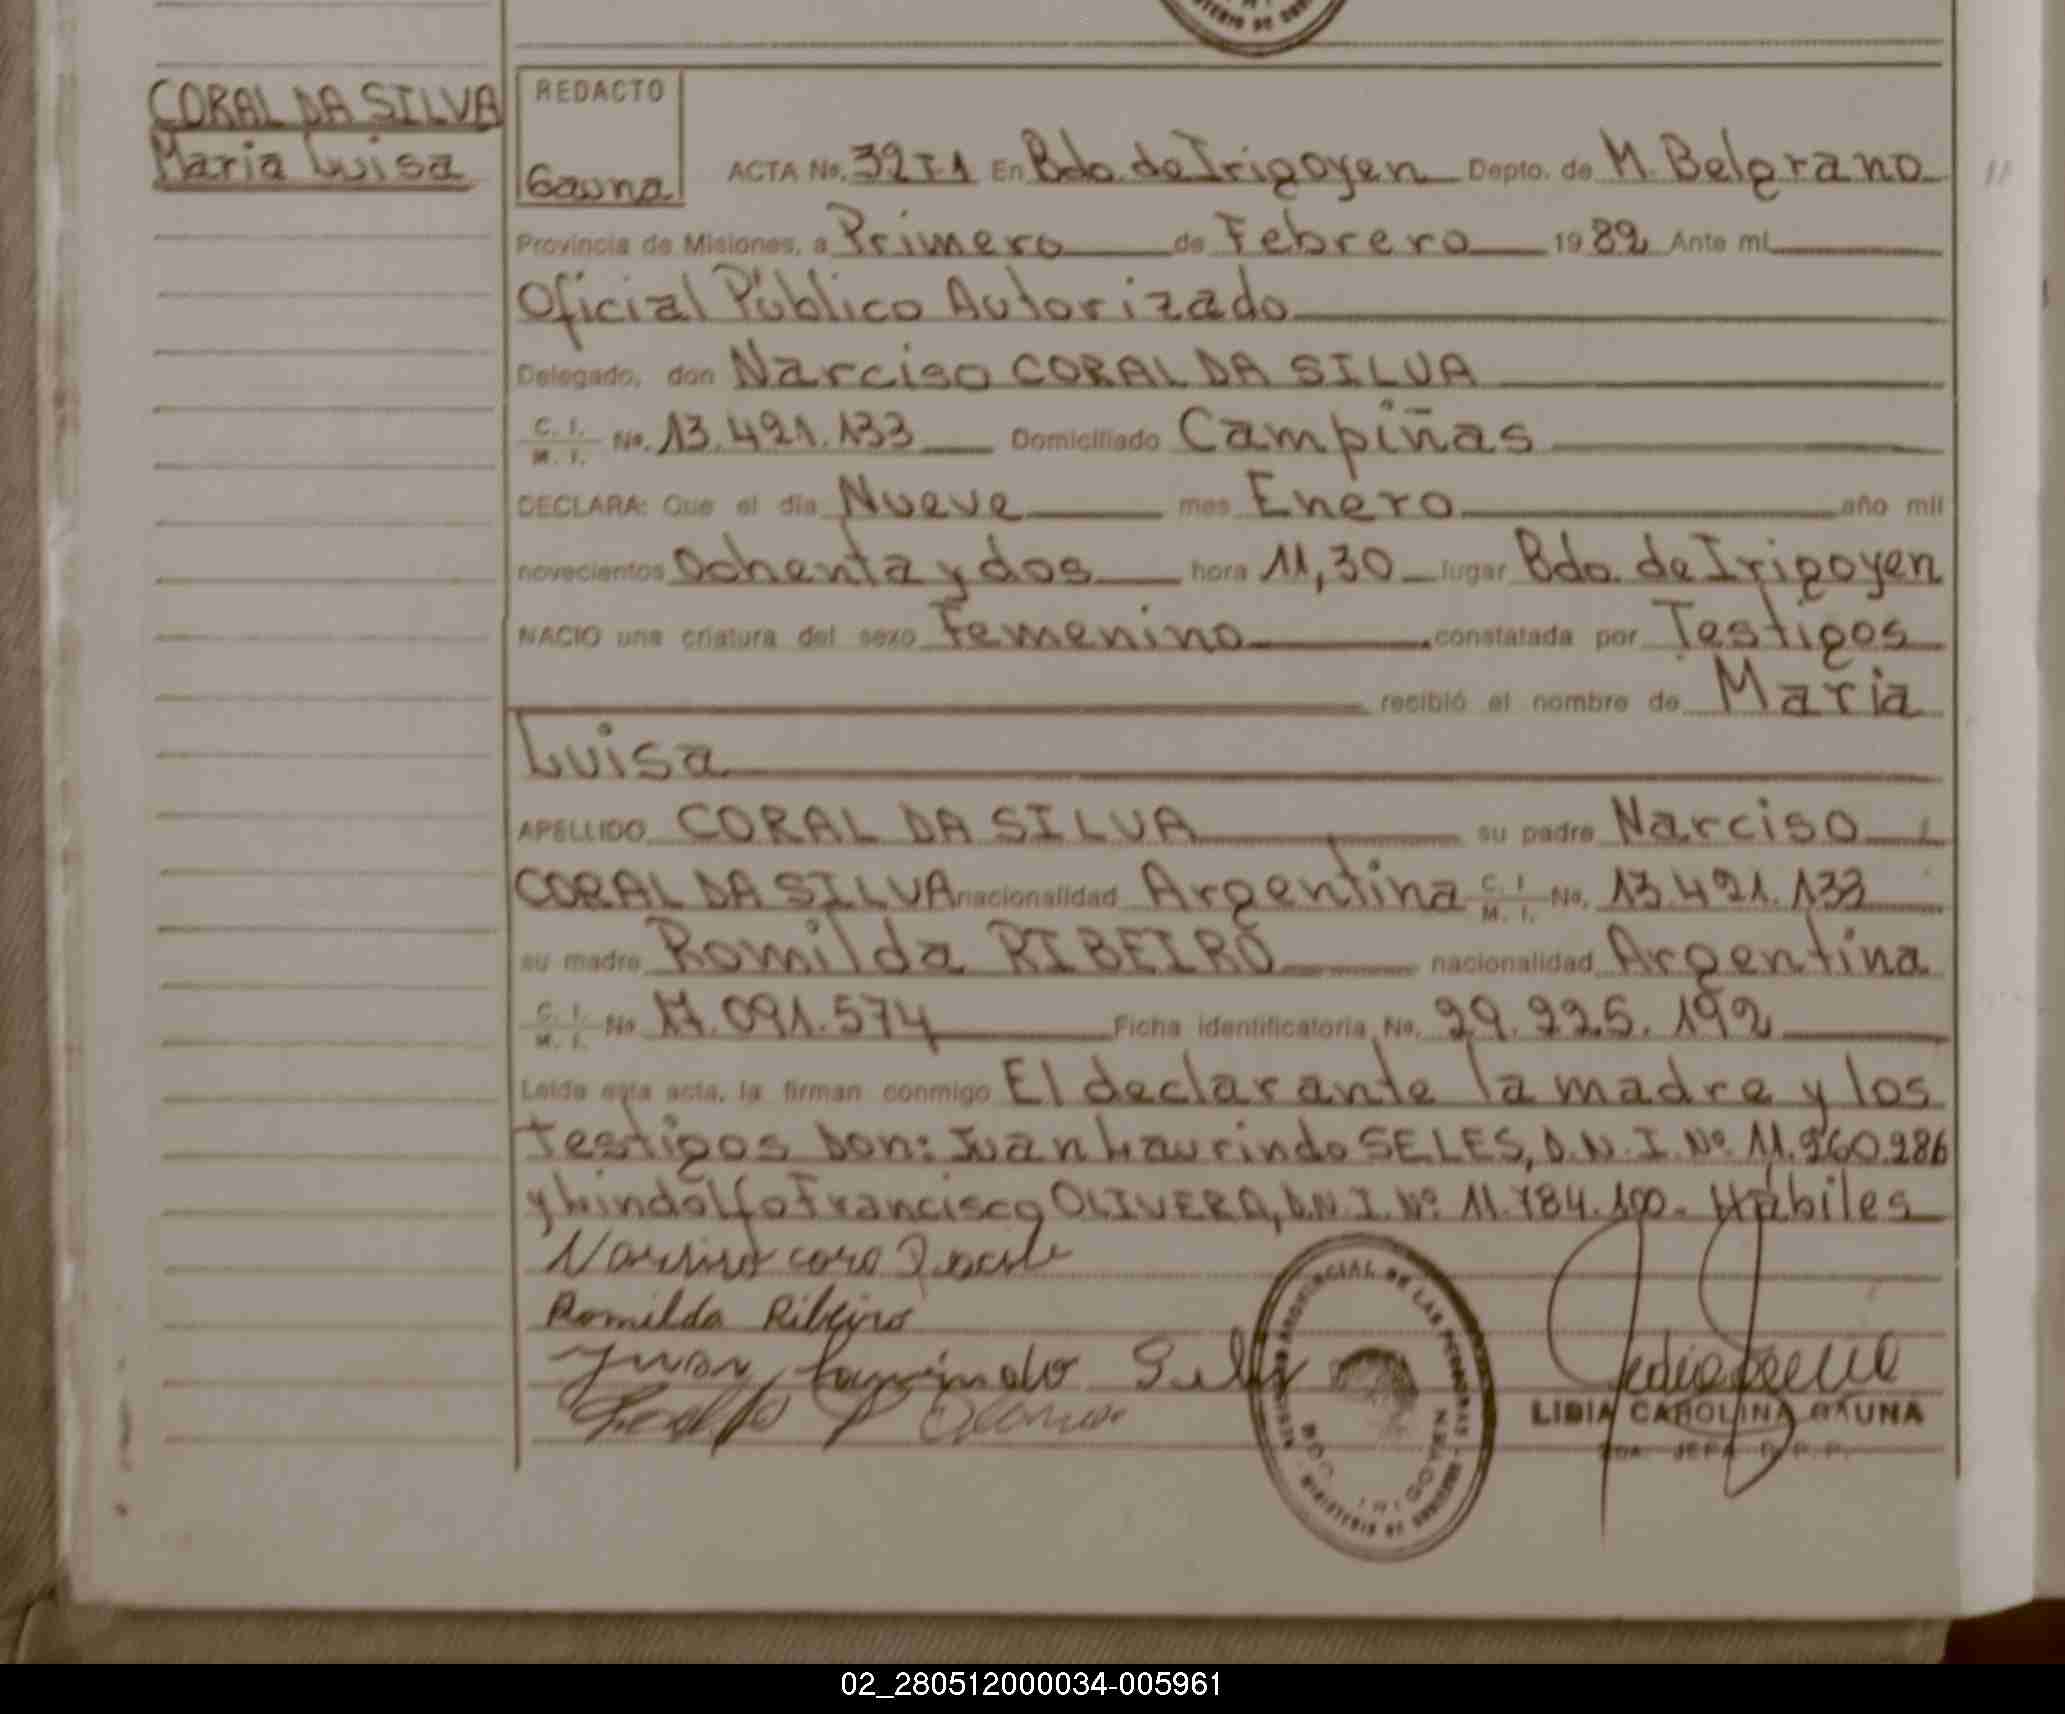 CORAL DA SILVA
Maria Luisa
REDACTO
Gauna
ACTA No. 32T1 En Bdo. de Irigoyen Depto. de M. Belgrano
Provincia de Misiones, a Primero de Febrero 1982 Ante mi
Oficial Público Autorizado
Delegado, don Narciso CORAL DA SILVA
C. I. M. I. No. 13.421.133 Domiciliado Campiñas
DECLARA: Que el día Nueve mes Enero año mil
novecientos Ochenta y dos hora 11,30 lugar Bdo. de Irigoyen
NACIO una criatura del sexo Femenino constatada por Testigos
recibió el nombre de Maria
Luisa
APELLIDO CORAL DA SILVA su padre Narciso
CORAL DA SILVA nacionalidad Argentina C. I. M. I. No. 13.421.133
su madre Romilda RIBEIRO nacionalidad Argentina
C. I. M. I. No 17.091.574 Ficha identificatoria No. 29.225.192
Leída esta acta, la firman conmigo El declarante la madre y los
Testigos Don: Juan Laurindo SELES, D.N.I. Nº 11.260.286
y Lindolfo Francisco OLIVERA, D.N.I. Nº 11.784.100. Hábiles
Romilda Ribeiro
Juan Laurindo
LIDIA CAROLINA GAUNA
JEFA R.P.P.
PROVINCIAL DE LAS PERSONAS
MINISTERIO DE
02_280512000034-005961